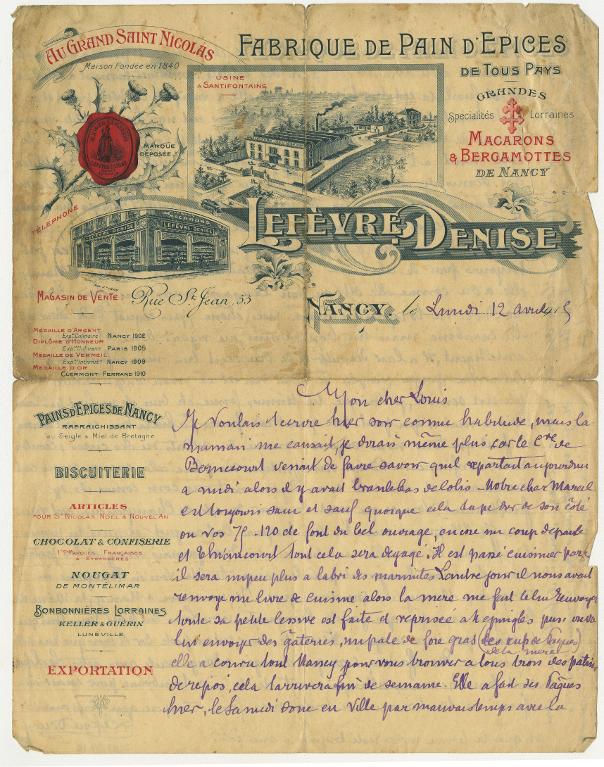 AU GRAND SAINT NICOLAS
Maison Fondée en 1840
FABRIQUE DE PAIN D'EPICES
DE TOUS PAYS
USINE
A SANTIFONTAINE
GRANDES
Spécialités Lorraines
MACARONS
& BERGAMOTTES
DE NANCY
MARQUE
DÉPOSÉE
TÉLÉPHONE
LEFÈVRE DENISE
LEFÈVRE-DENISE
MAGASIN DE VENTE: Rue St Jean, 55
NANCY, le Lundi 12 avril 15
MÉDAILLE D'ARGENT
NANCY 1902
DIPLÔME D'HONNEUR
PARIS 1905
MÉDAILLE DE VERMEIL
NANCY 1909
MÉDAILLE D'OR
CLERMONT-FERRAND 1910
PAINS D'EPICES DE NANCY
RAFRAICHISSANT
au Seigle & Miel de Bretagne
BISCUITERIE
ARTICLES
POUR St NICOLAS, NOËL & NOUVEL AN
CHOCOLAT & CONFISERIE
1res MARQUES FRANÇAISES
& ETRANGÈRES
NOUGAT
DE MONTÉLIMAR
BONBONNIÈRES LORRAINES
KELLER & GUÉRIN
LUNÉVILLE
EXPORTATION
Mon cher Louis
Je voulais t'ecrire hier soir comme habitude, mais la
maman me causait, je dirais même plus car le Cte de
venait de faire savoir quil repartait aujourdhui
a midi alors il y avait branlebas de colis. Notre cher Marcel
est toujours sain et sauf quoique cela tape dur de son côté
ou vos 75 - 120 de font du bel ouvrage, encore un coup d'epaule
et Thiaucourt tout cela sera degagé. Il est passé cuisinier
il sera un peu plus a l'abri des marmites. L'autre jour il nous avait
renvoyé un livre de cuisine alors la mere me fait le lui renvoyer
toute sa petite lessive est faite et reprisée
lui envoyer des gateries, un pate de foie gras
de la mere
elle a couru tout Nancy pour vous trouver a tous trois des
de repos, cela t'arrivera fin de semaine. Elle a fait ses Pâques
hier, le Samedi donc en ville par mauvais temps avec la